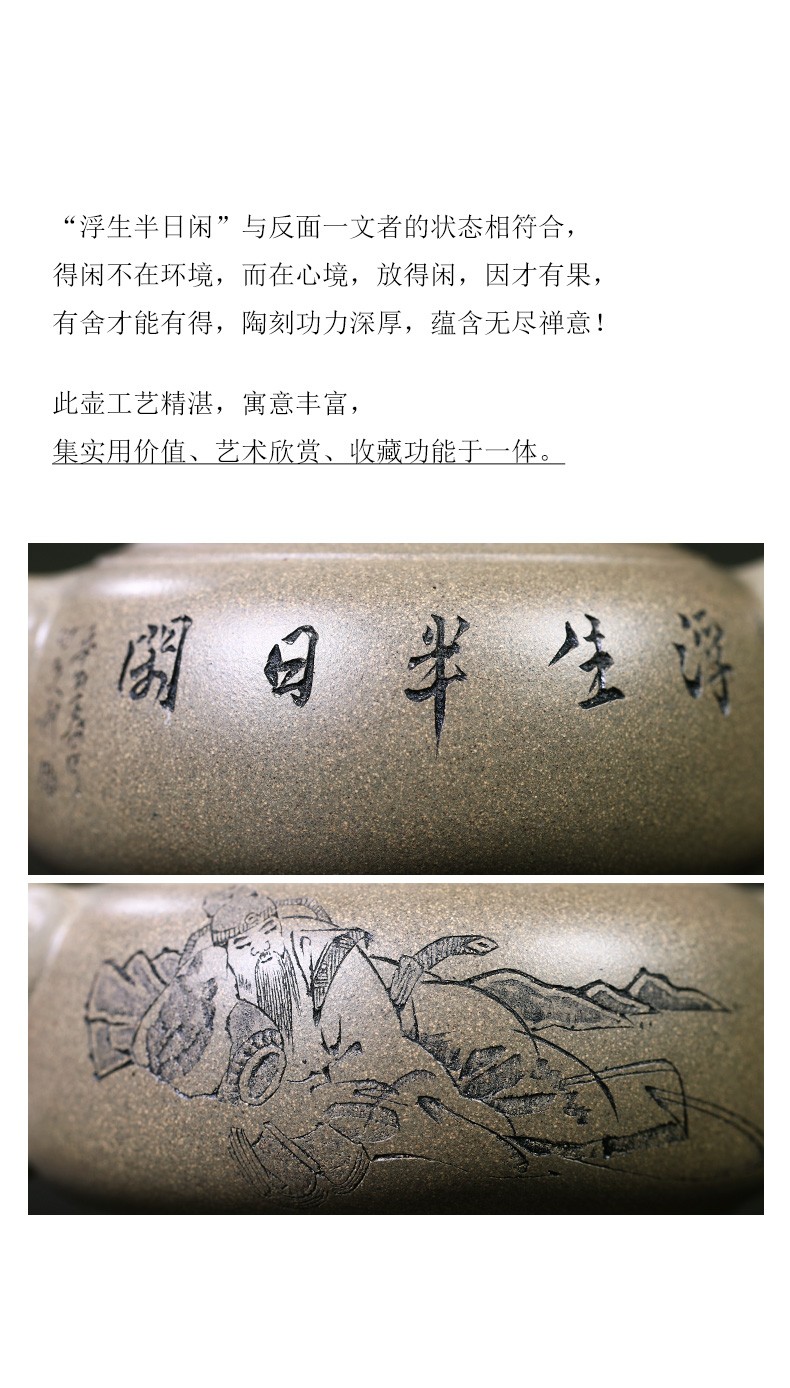 “浮生半日闲”与反面一文者的状态相符合，
得闲不在环境，而在心境，放得闲，因才有果，
有舍才能有得，陶刻功力深厚，蕴含无尽禅意！
此壶工艺精湛，寓意丰富，
集实用价值、艺术欣赏、收藏功能于一体。
浮生半日閑